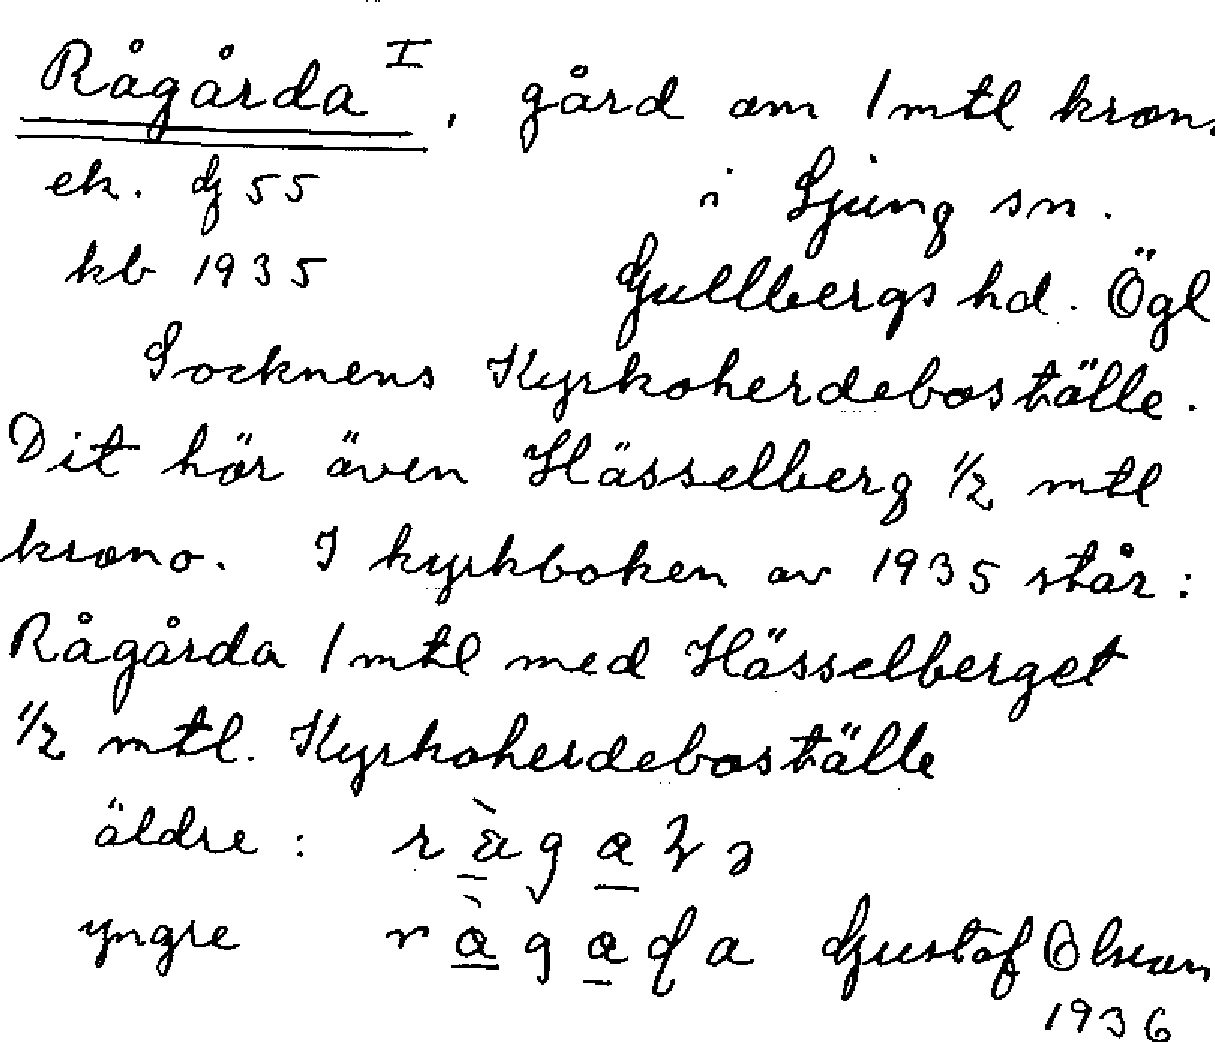 Rågårda I, gård om 1 mtl kron.
ek. bl 55 i Ljung sn.
kb 1935 Gullbergs hd. Ögl
Socknens Kyrkoherdeboställe.
Dit hör även Hässelberg 1/2 mtl
krono. I kyrkboken av 1935 står:
Rågårda 1 mtl med Hässelberget
1/2 mtl. Kyrkoherdeboställe
äldre:
yngre Gustaf Olsson
1936